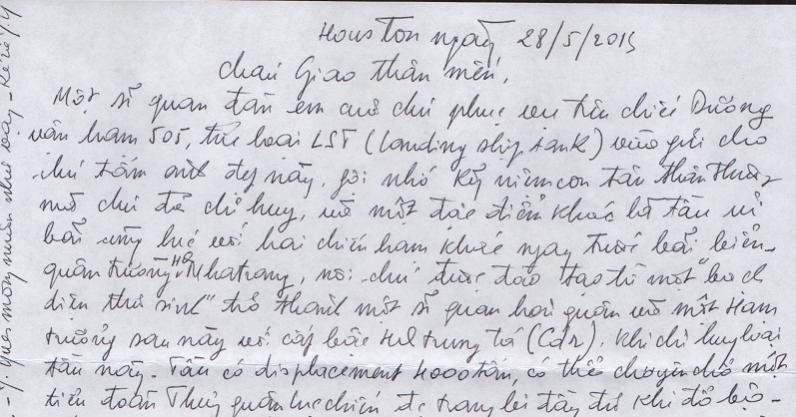 Houston ngày 28/5/2015
cháu Giao thân mến,
Một sĩ quan đàn em cũ chú phục vụ trên chiếc Dương
vận hạm 505, thuộc loại LST (landing ship tank) vừa gửi cho
chú tấm ảnh đẹp này, gợi nhớ kỷ niệm con tàu thân thương
mà chú đã chỉ huy, và một đặc điểm khác là tàu ủi
bãi cùng lúc với hai chiến hạm khác ngay trước bãi biển
quân trường HQ Nhatrang, nơi chú được đào tạo từ một "bạch
diện thư sinh" trở thành một sĩ quan hải quân và một Hạm
trưởng sau này với cấp bậc HQ trung tá (Cdr), khi chỉ huy loại
tàu này. Tàu có displacement 4000 tấn, có thể chuyên chở một
tiểu đoàn Thủy quân lục chiến đc trang bị đầy đủ khi đổ bộ-